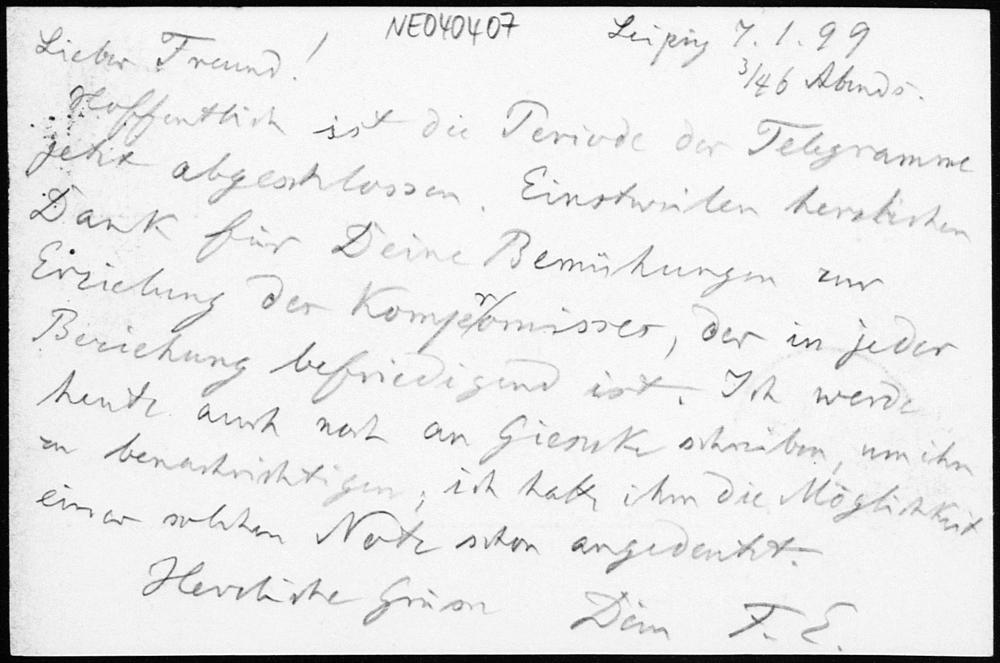 NE040407
Leipzig 7. 1. 99
3/46 Abends.
Lieber Freund!
Hoffentlich ist die Periode der Telegramme
jetzt abgeschlossen. Einstweilen herzlichen
Dank für Deine Bemühungen zur
Erzielung des Kompromisses, der in jeder
Beziehung befriedigend ist. Ich werde
heute auch noch an Gieseke schreiben, um ihn
zu benachrichtigen; ich hatte ihm die Möglichkeit
einer solchen Note schon angedeutet.
Herzliche Grüsse Dein F. E.